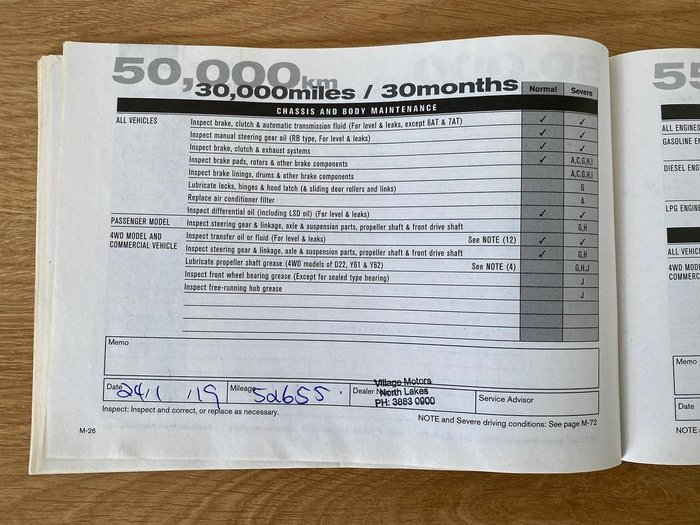 50,000km
30,000miles / 30months
Normal Severe
CHASSIS AND BODY MAINTENANCE
ALL VEHICLES Inspect brake, clutch & automatic transmission fluid (For level & leaks, except 6AT & 7AT) ✓ ✓
Inspect manual steering gear oil (RB type, For level & leaks) ✓ ✓
Inspect brake, clutch & exhaust systems ✓ ✓
Inspect brake pads, rotors & other brake components ✓ A,C,G,H,I
Inspect brake linings, drums & other brake components A,C,G,H,I
Lubricate locks, hinges & hood latch (& sliding door rollers and links) G
Replace air conditioner filter A
Inspect differential oil (including LSD oil) (For level & leaks) ✓ ✓
PASSENGER MODEL Inspect steering gear & linkage, axle & suspension parts, propeller shaft & front drive shaft G,H
4WD MODEL AND COMMERCIAL VEHICLE Inspect transfer oil or fluid (For level & leaks) See NOTE (12) ✓ ✓
Inspect steering gear & linkage, axle & suspension parts, propeller shaft & front drive shaft ✓ G,H
Lubricate propeller shaft grease (4WD models of D22, Y61 & Y62) See NOTE (4) G,H,J
Inspect front wheel bearing grease (Except for sealed type bearing) J
Inspect free-running hub grease J
Memo
Date 24/1/19 Mileage 52655. Dealer Village Motors
North Lakes
PH: 3883 0900
Service Advisor
Inspect: Inspect and correct, or replace as necessary.
NOTE and Severe driving conditions: See page M-72
M-26
55
ALL ENGINES
GASOLINE EN
DIESEL ENG
LPG ENGINE
ALL VEHIC
4WD MODE
COMMERC
Memo
Date
NOTE